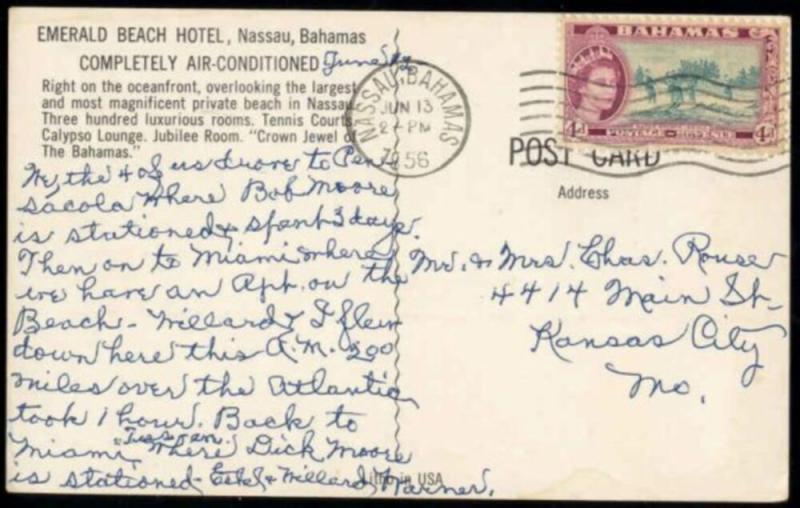 EMERALD BEACH HOTEL, Nassau, Bahamas
COMPLETELY AIR-CONDITIONED
Right on the oceanfront, overlooking the largest
and most magnificent private beach in Nassau.
Three hundred luxurious rooms. Tennis Courts.
Calypso Lounge. Jubilee Room. "Crown Jewel of
The Bahamas."
June
We, the 4 of us drove to Pen-
sacola where Bob Moore
is stationed & spent 3 days.
Then on to Miami where
we have an Apt. on the
Beach - Willard & I flew
down here this A.M. 200
miles over the Atlantic
took 1 hour. Back to
Miami Tues am. where Dick Moore
is stationed - Estel & Willard Warner.
NASSAU, BAHAMAS
JUN 13
2 - PM
1956
BAHAMAS
4d
4d
POST CARD
Address
Mr. & Mrs. Chas. Rouse
4414 Main St-
Kansas City
Mo.
Litho in USA